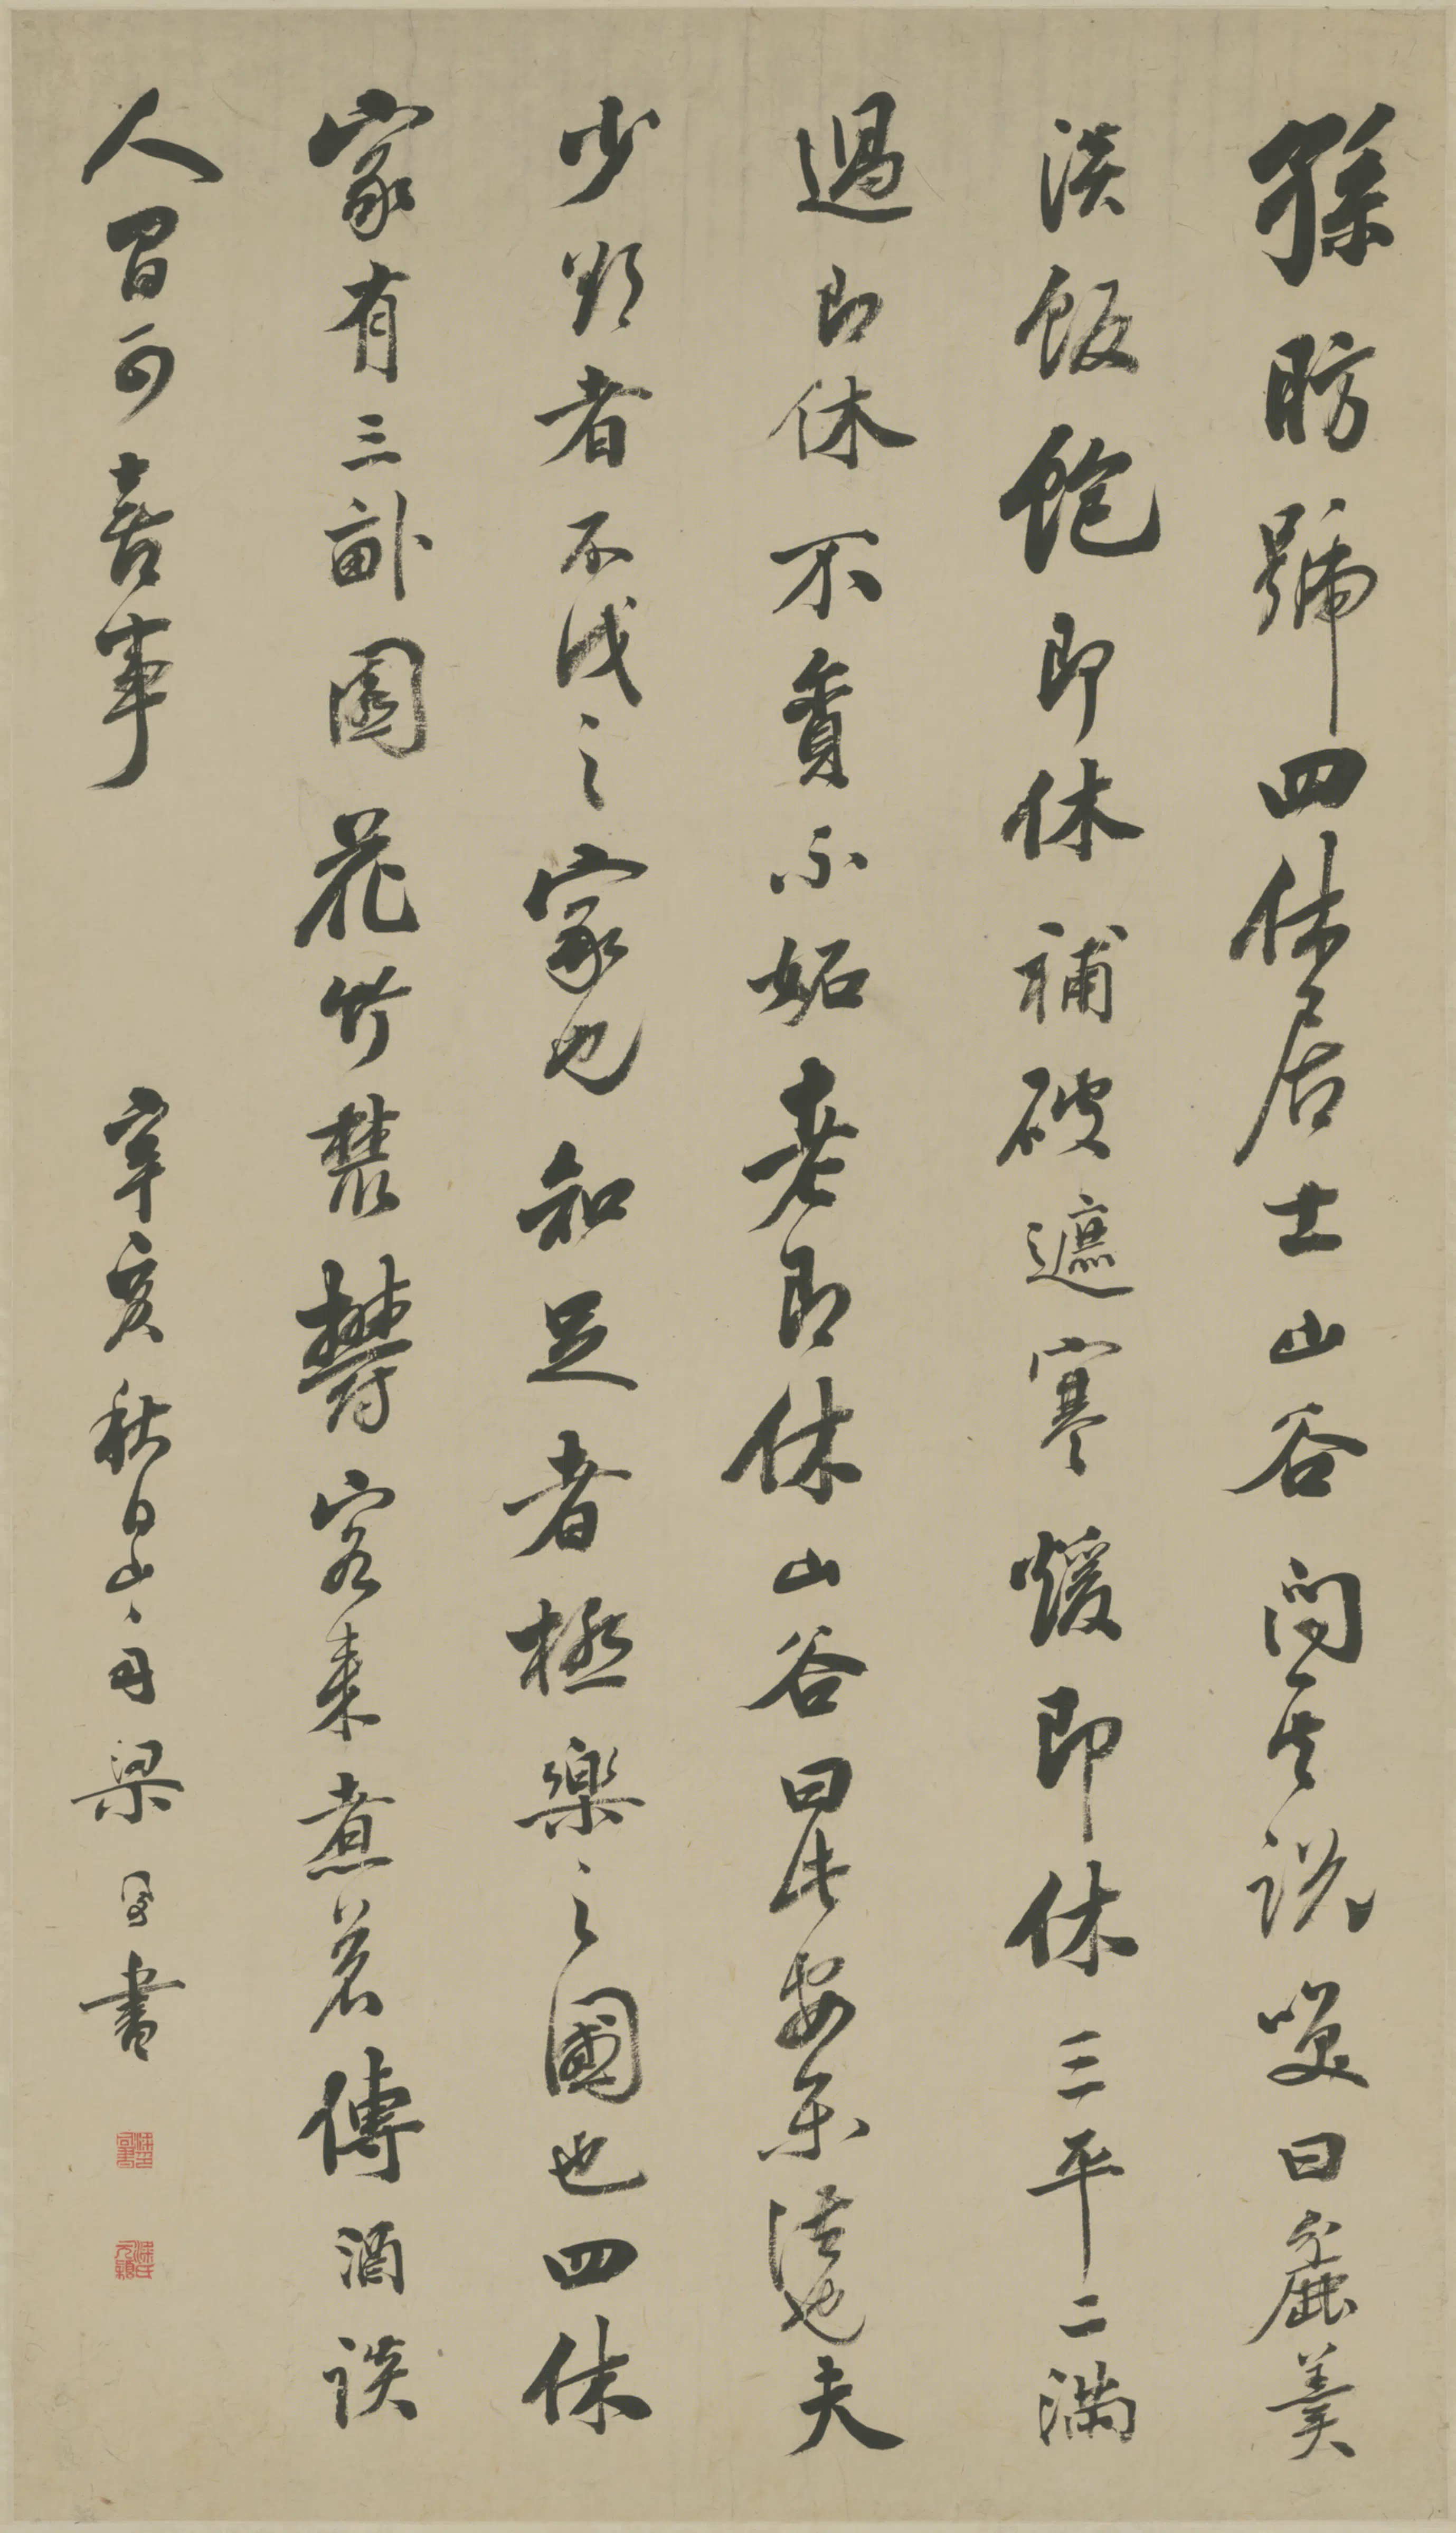 孫昉號四休居士山谷问其说笑曰麁羹
淡飯飽即休補破遮寒煖即休三平二滿
過即休不貪不妬老即休山谷曰此安樂法也夫
少欲者不伐之家也知足者極樂之國也四休
家有三畝園花竹欝欝客来煮茗傳酒談
人間可喜事
辛亥秋日山舟梁同書